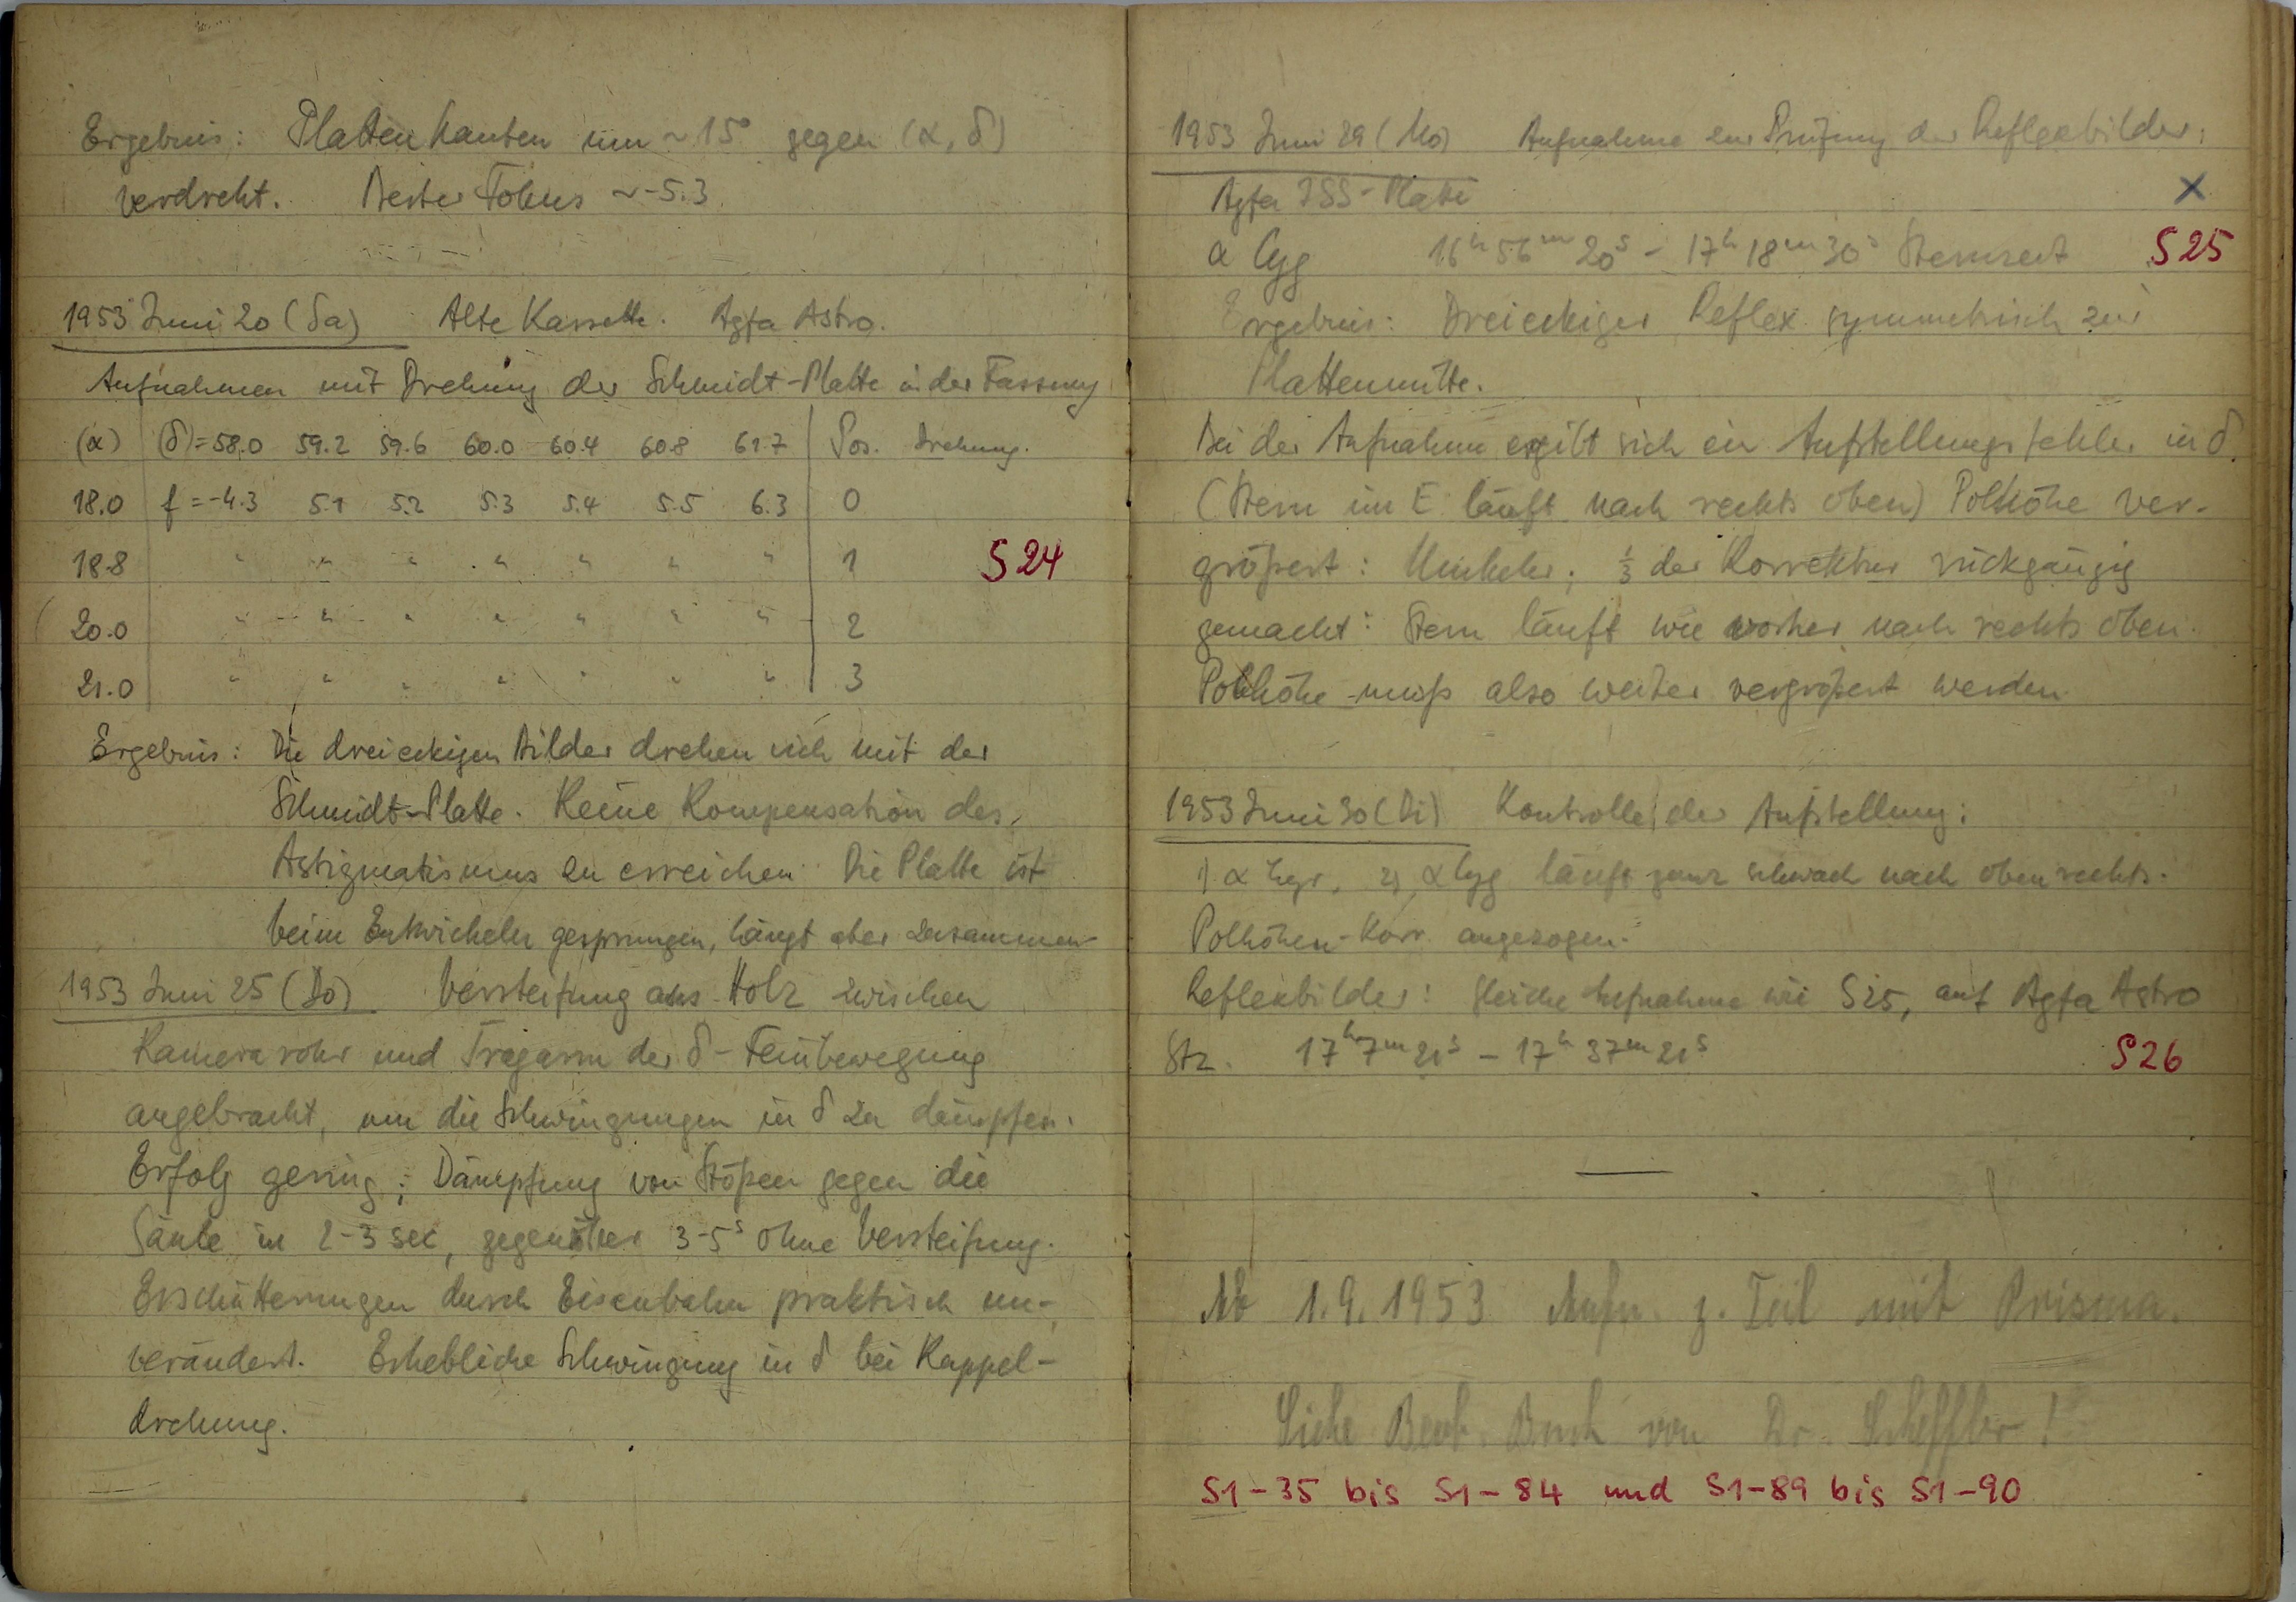 Ergebnis: Plattenkanten um ~15° gegen (α, δ)
verdreht. Bester Fokus ~-5.3
1953 Juni 20 (Sa) Alte Kassette. Agfa Astro.
Aufnahmen mit Drehung der Schmidt-Platte in der Fassung
(α) (δ)=58.0 59.2 59.6 60.0 60.4 60.8 61.7 Pos. Drehung.
18.0 f=-4.3 5.1 5.2 5.3 5.4 5.5 6.3 0
18.8 " " " " " " " 1 S24
20.0 " " " " " " " 2
21.0 " " " " " " " 3
Ergebnis: Die dreieckigen Bilder drehen sich mit der
Schmidt-Platte. Keine Kompensation des
Astigmatismus zu erreichen. Die Platte ist
beim Entwickeln gesprungen, hängt aber zusammen
1953 Juni 25 (Do) Versteifung aus Holz zwischen
Kamerarohr und Tragarm der δ-Feinbewegung
angebracht, um die Schwingungen in δ zu dämpfen.
Erfolg gering; Dämpfung von Stößen gegen die
Säule in 2-3 sec, gegenüber 3-5ˢ ohne Versteifung.
Erschütterungen durch Eisenbahn praktisch un-
verändert. Erhebliche Schwingung in δ bei Kuppel-
drehung.
1953 Juni 29 (Mo) Aufnahme zur Prüfung der Reflexbilder:
Agfa ISS-Platte X
α Cyg 16ʰ56ᵐ20ˢ - 17ʰ18ᵐ30ˢ Sternzeit S25
Ergebnis: Dreieckiger Reflex symmetrisch zur
Plattenmitte.
Bei der Aufnahme ergibt sich ein Aufstellungsfehler in δ.
(Stern im E läuft nach rechts oben) Polhöhe ver-
größert: Umkehr; 1/3 der Korrektur rückgängig
gemacht: Stern läuft wie vorher nach rechts oben.
Polhöhe muß also weiter vergrößert werden.
1953 Juni 30 (Di) Kontrolle der Aufstellung:
1) α Lyr, 2) α Cyg läuft ganz schwach nach oben rechts.
Polhöhen-Korr. angezogen.
Reflexbilder: Gleiche Aufnahme wie S25, auf Agfa Astro
Stz. 17ʰ7ᵐ21ˢ - 17ʰ37ᵐ21ˢ S26
Ab 1.9.1953 Aufn. z. Teil mit Prisma.
Siehe Beob. Buch von Dr. Scheffler!
S1-35 bis S1-84 und S1-89 bis S1-90